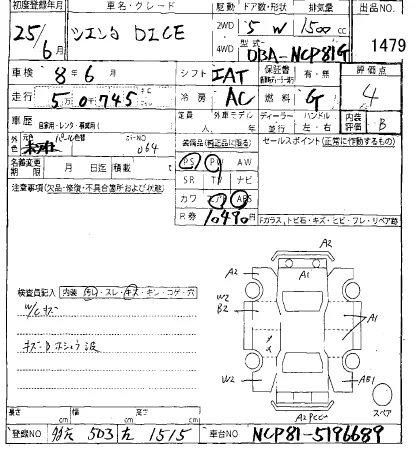 初度登録年月 車名・グレード 駆動 ドア数・形状 排気量 出品NO.
25/6月 シエンタ DICE 2WD 4WD 5 W 1500cc 1479
型式 DBA-NCP81G
車検 8年6月 シフト IAT 保証書 有・無 評価点 4
走行 5万0千745 冷房 AC 燃料 G 内装評価 B
車歴 自家用・レンタ・ 定員 人 外車モデル 年 ディーラー 並行 ハンドル 左・右
外色 元色 カラーNO 064 装備品(純正品に限る) セールスポイント(正常に作動するもの)
名義変更期限 月 日迄 積載 t PS PW AW
注意事項(欠品・修復・不具合箇所および状態) SR TV ナビ
カワ エアB ABS
R券 10490円 Fガラス,トビ石・キズ・ヒビ・フレ・リペア跡
A2
A2 A1
検査員記入 内装 汚レ・スレ・キズ・キレ・コゲ・穴 W2 B2
W/Cキズ A1
W2 AE1
A2PCC スペア
長さ cm 幅 cm 高さ cm
登録NO 503 1515 車台NO NCP81-5196689